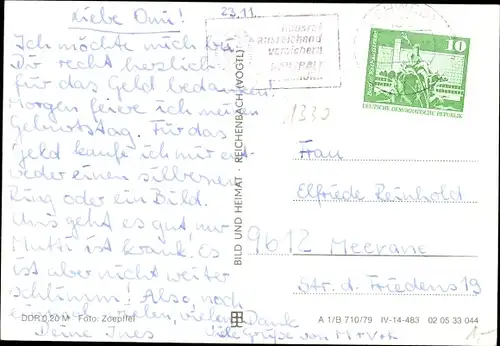 23.11.
Liebe Omi!
Ich möchte mich bei
Dir recht herzlich
für das Geld bedanken!
Morgen feiere ich meinen
Geburtstag. Für das
Geld kaufe ich mir ent-
weder einen silbernen
Ring oder ein Bild.
Uns geht es gut, nur
Mutti ist krank. Es
ist aber nicht weiter
schlimm! Also, noch
vielen, vielen Dank
Deine Ines
Viele Grüße von M+V+K
DDR 0,20 M Foto: Zoepffel
BILD UND HEIMAT · REICHENBACH (VOGTL)
Hausrat
ausreichend
versichern
10
DEUTSCHE DEMOKRATISCHE REPUBLIK
1330
Frau
Elfriede Reinhold
9612 Meerane
Str. d. Friedens 19
A 1/B 710/79 IV-14-483 02 05 33 044
1.-